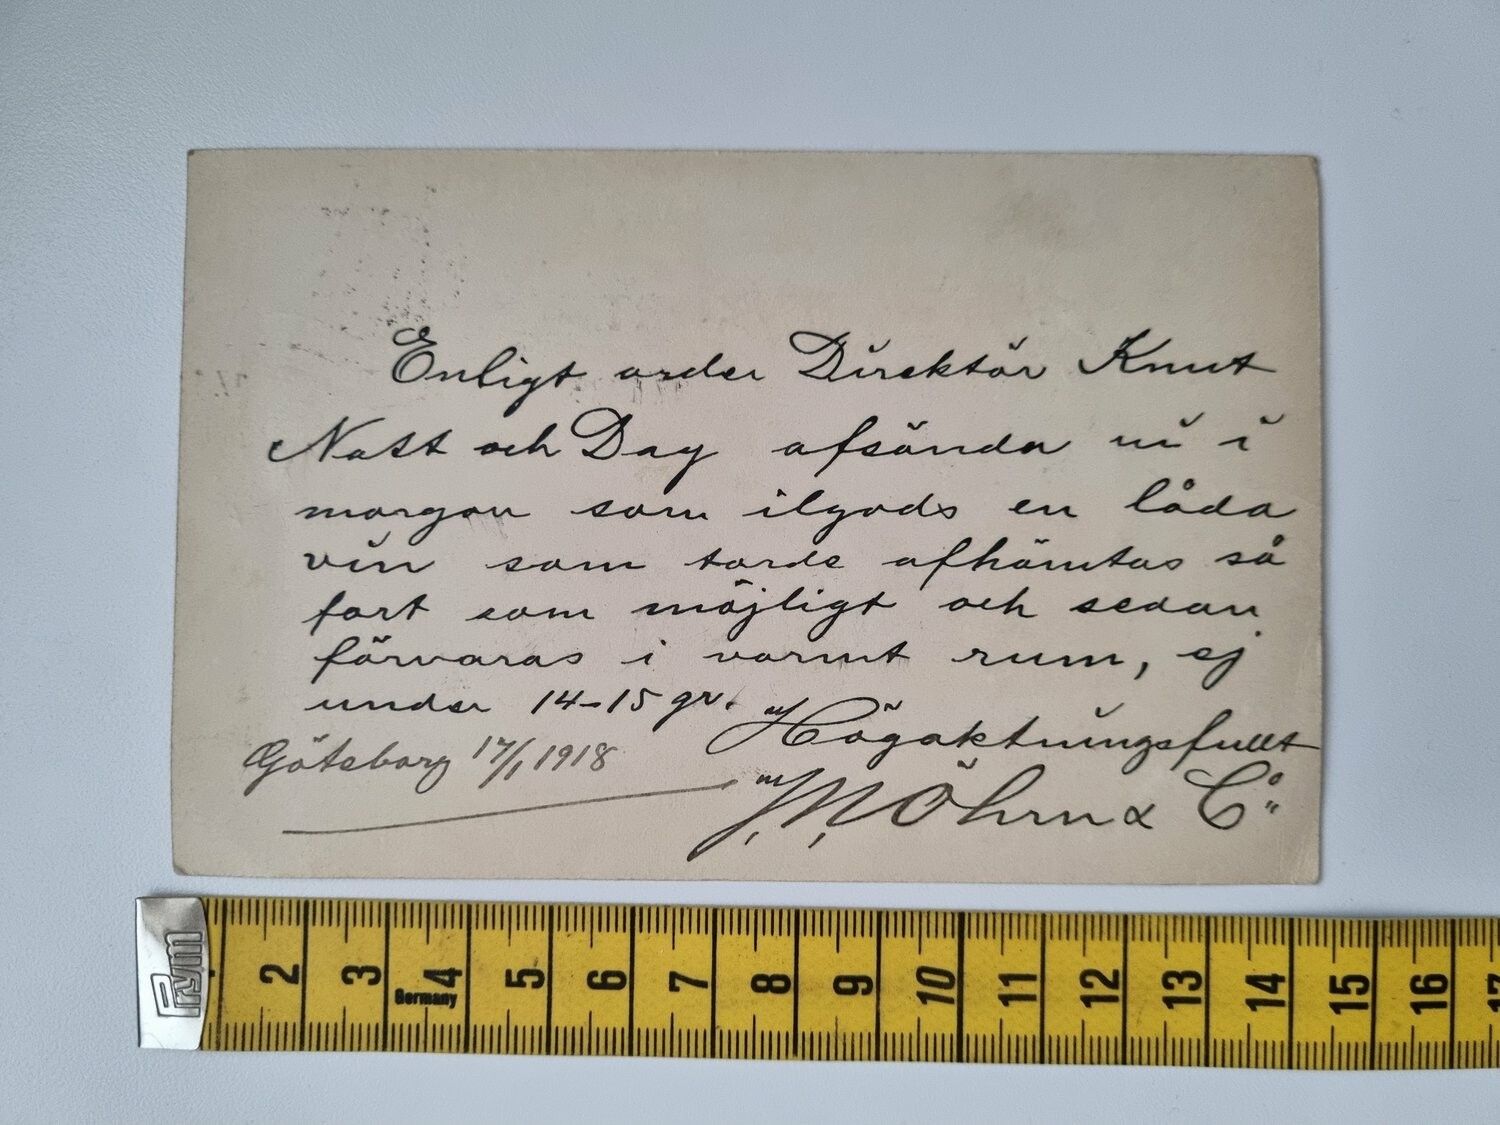 Enligt order Direktör Knut
Natt och Dag afsända vi i
morgon som ilgods en låda
vin som torde afhämtas så
fort som möjligt och sedan
förvaras i varmt rum, ej
under 14-15 gr.
Högaktningsfullt
Göteborg 17/1 1918
J, W, Öhrn & Co
Prym
2 3 4 5 6 7 8 9 10 11 12 13 14 15 16 17
Germany